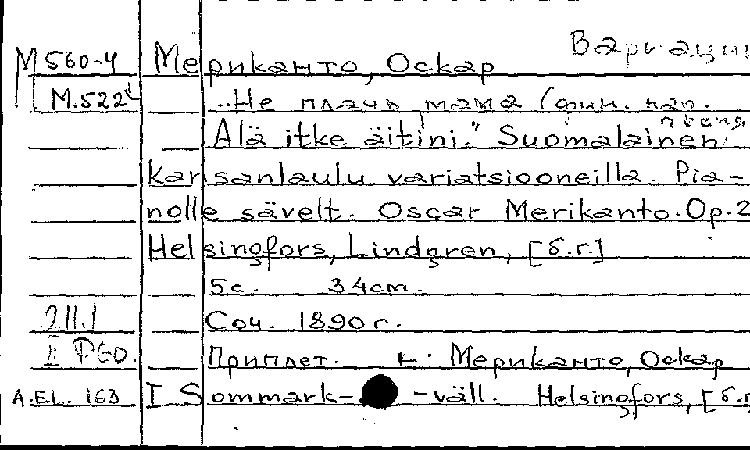 Вариации
М 560-4 Мериканто, Оскар
М.522 "Не плачь мама (фин. нап. песня
Älä itke äitini." Suomalainen
kansanlaulu variatsiooneilla. Pia-
nolle sävelt. Oscar Merikanto. Op.2
Helsingfors, Lindgren, [б.г.]
5с. 34cm.
Соч. 1890г.
Приплет. к: Мериканто, Оскар
A.EL. 163 I Sommark- -väll. Helsingfors, [б.г